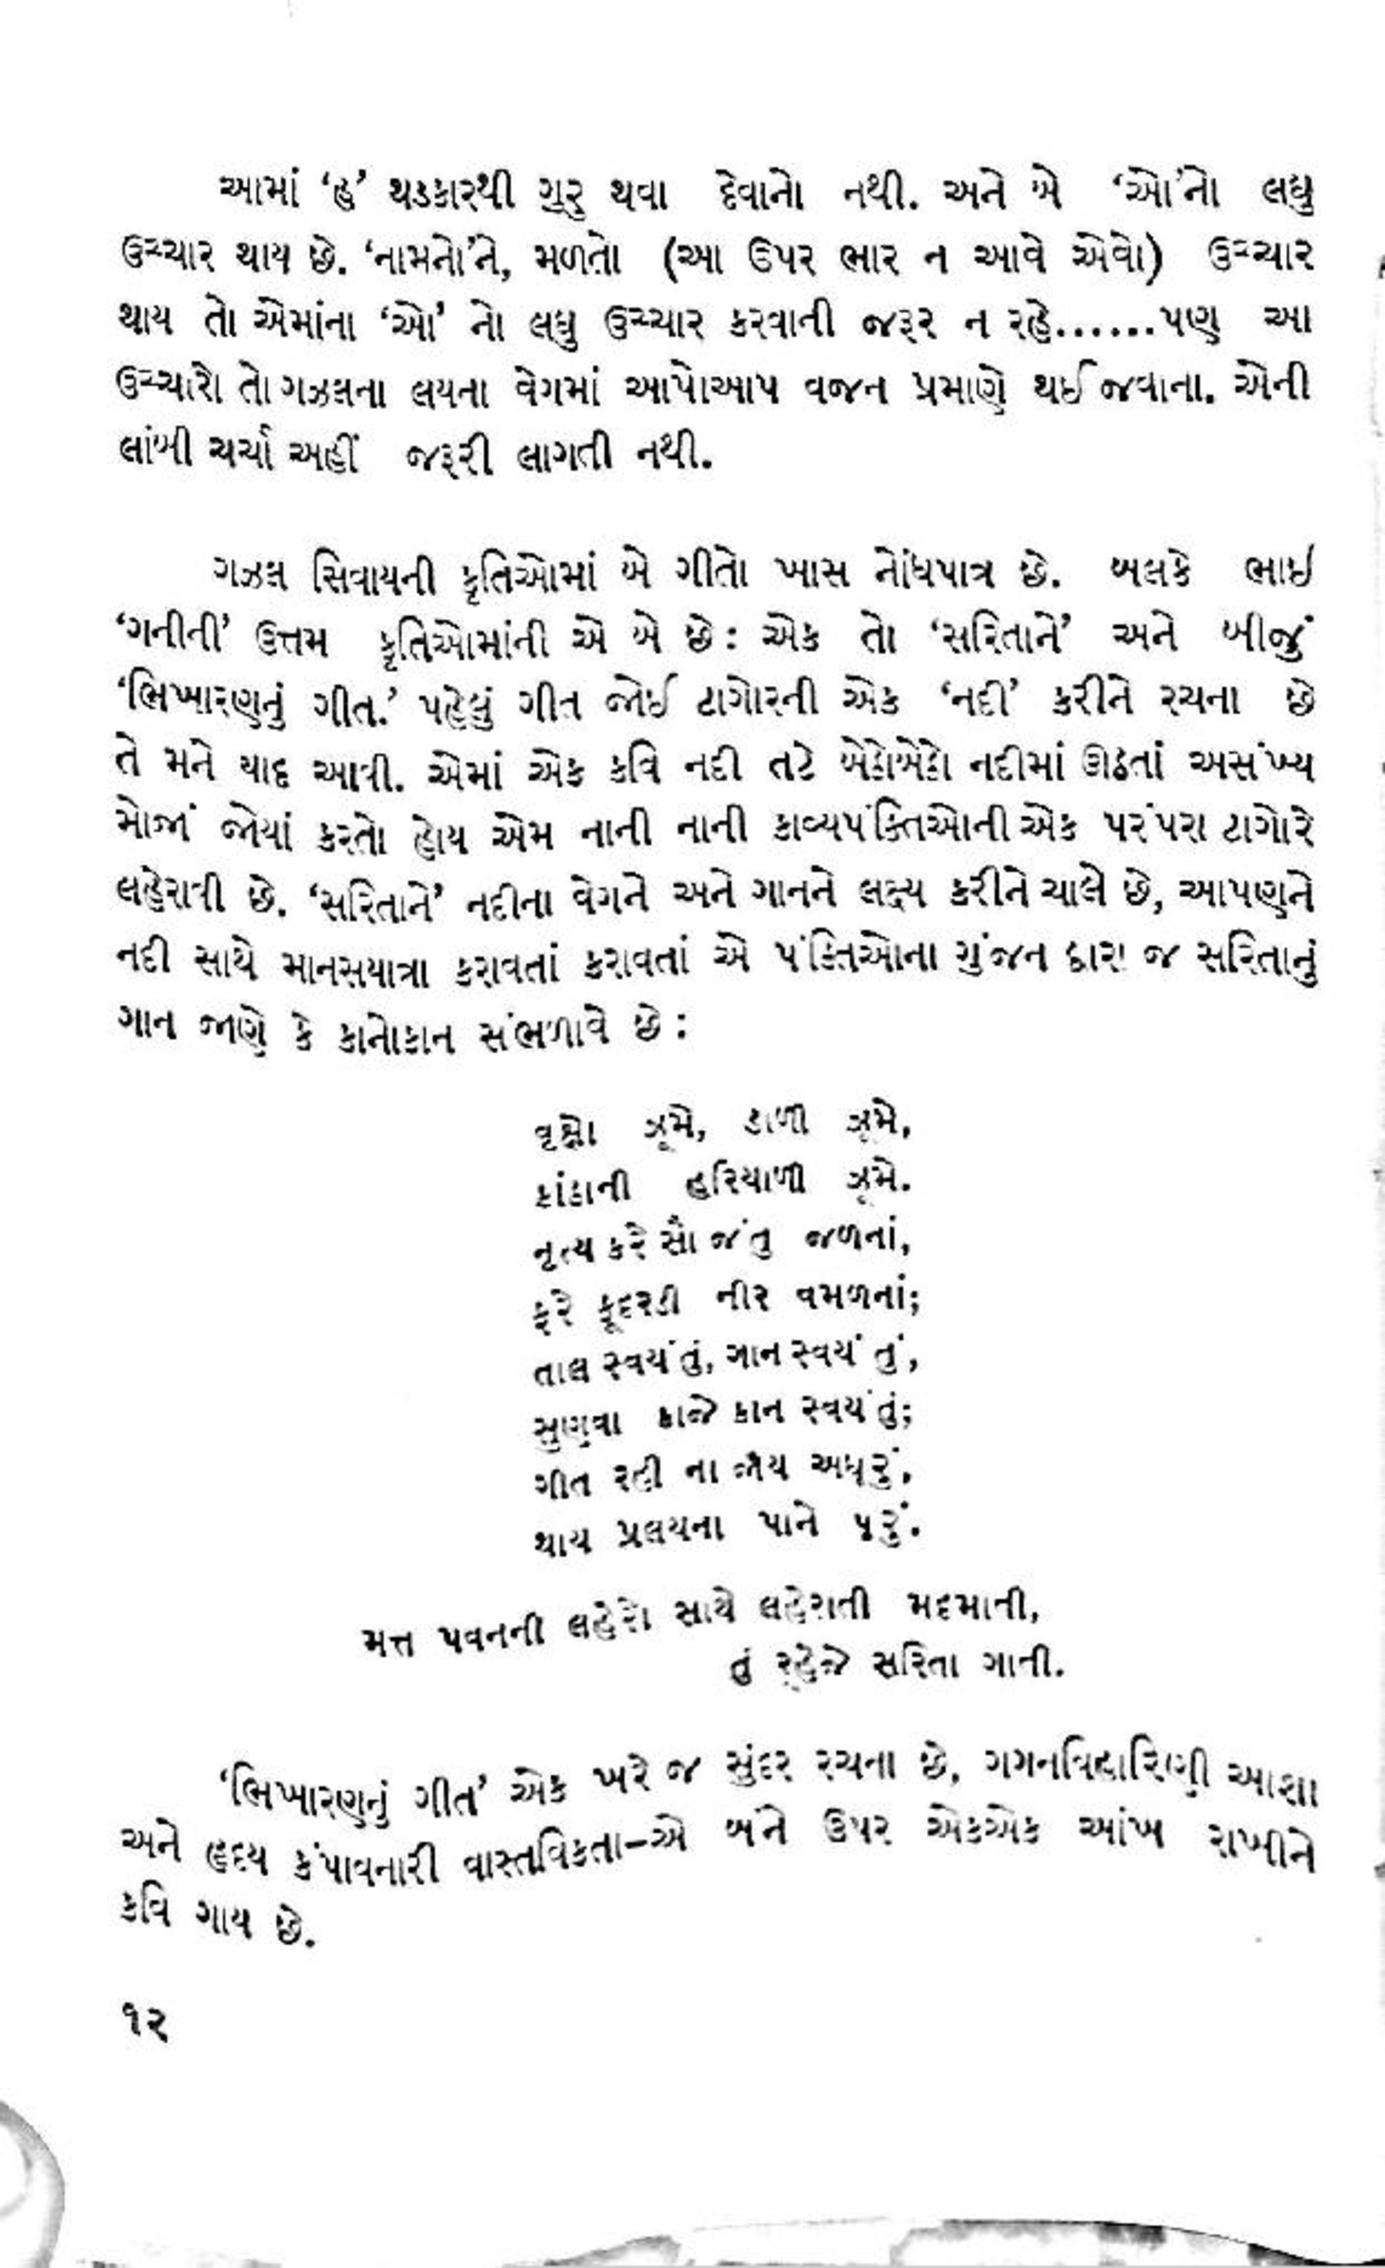 આમાં ‘હ’ થડકારથી ગુરુ થવા દેવાનો નથી. અને બે ‘ઓ’નો લઘુ
ઉચ્ચાર થાય છે. ‘નામનો’ને, મળતો (આ ઉપર ભાર ન આવે એવો) ઉચ્ચાર
થાય તો એમાંના ‘ઓ’ નો લઘુ ઉચ્ચાર કરવાની જરૂર ન રહે......પણ આ
ઉચ્ચારો તો ગઝલના લયના વેગમાં આપોઆપ વજન પ્રમાણે થઈ જવાના. એની
લાંબી ચર્ચા અહીં જરૂરી લાગતી નથી.
ગઝલ સિવાયની કૃતિઓમાં બે ગીતો ખાસ નોંધપાત્ર છે. બલકે ભાઈ
‘ગનીની’ ઉત્તમ કૃતિઓમાંની એ બે છે: એક તો ‘સરિતાને’ અને બીજું
‘ભિખારણનું ગીત.’ પહેલું ગીત જોઈ ટાગોરની એક ‘નદી’ કરીને રચના છે
તે મને યાદ આવી. એમાં એક કવિ નદી તટે બેઠોબેઠો નદીમાં ઊઠતાં અસંખ્ય
મોજાં જોયાં કરતો હોય એમ નાની નાની કાવ્યપંક્તિઓની એક પરંપરા ટાગોરે
લહેરાવી છે. ‘સરિતાને’ નદીના વેગને અને ગાનને લક્ષ્ય કરીને ચાલે છે, આપણને
નદી સાથે માનસયાત્રા કરાવતાં કરાવતાં એ પંક્તિઓના ગુંજન દ્વારા જ સરિતાનું
ગાન જાણે કે કાનોકાન સંભળાવે છે:
વૃક્ષો ઝૂમે, ડાળી ઝૂમે,
કાંઠાની હરિયાળી ઝૂમે.
નૃત્ય કરે સૌ જંતુ જળનાં,
ફરે ફૂદરડી નીર વમળનાં;
તાલ સ્વયં તું, ગાન સ્વયં તું,
સુણવા કાજે કાન સ્વયં તું;
ગીત રહી ના જાય અધૂરું,
થાય પ્રલયના પાને પૂરું.
મત્ત પવનની લહેરો સાથે લહેરાતી મદમાતી,
તું રહેજે સરિતા ગાતી.
‘ભિખારણનું ગીત’ એક ખરે જ સુંદર રચના છે, ગગનવિહારિણી આશા
અને હૃદય કંપાવનારી વાસ્તવિકતા–એ બંને ઉપર એકએક આંખ રાખીને
કવિ ગાય છે.
૧૨